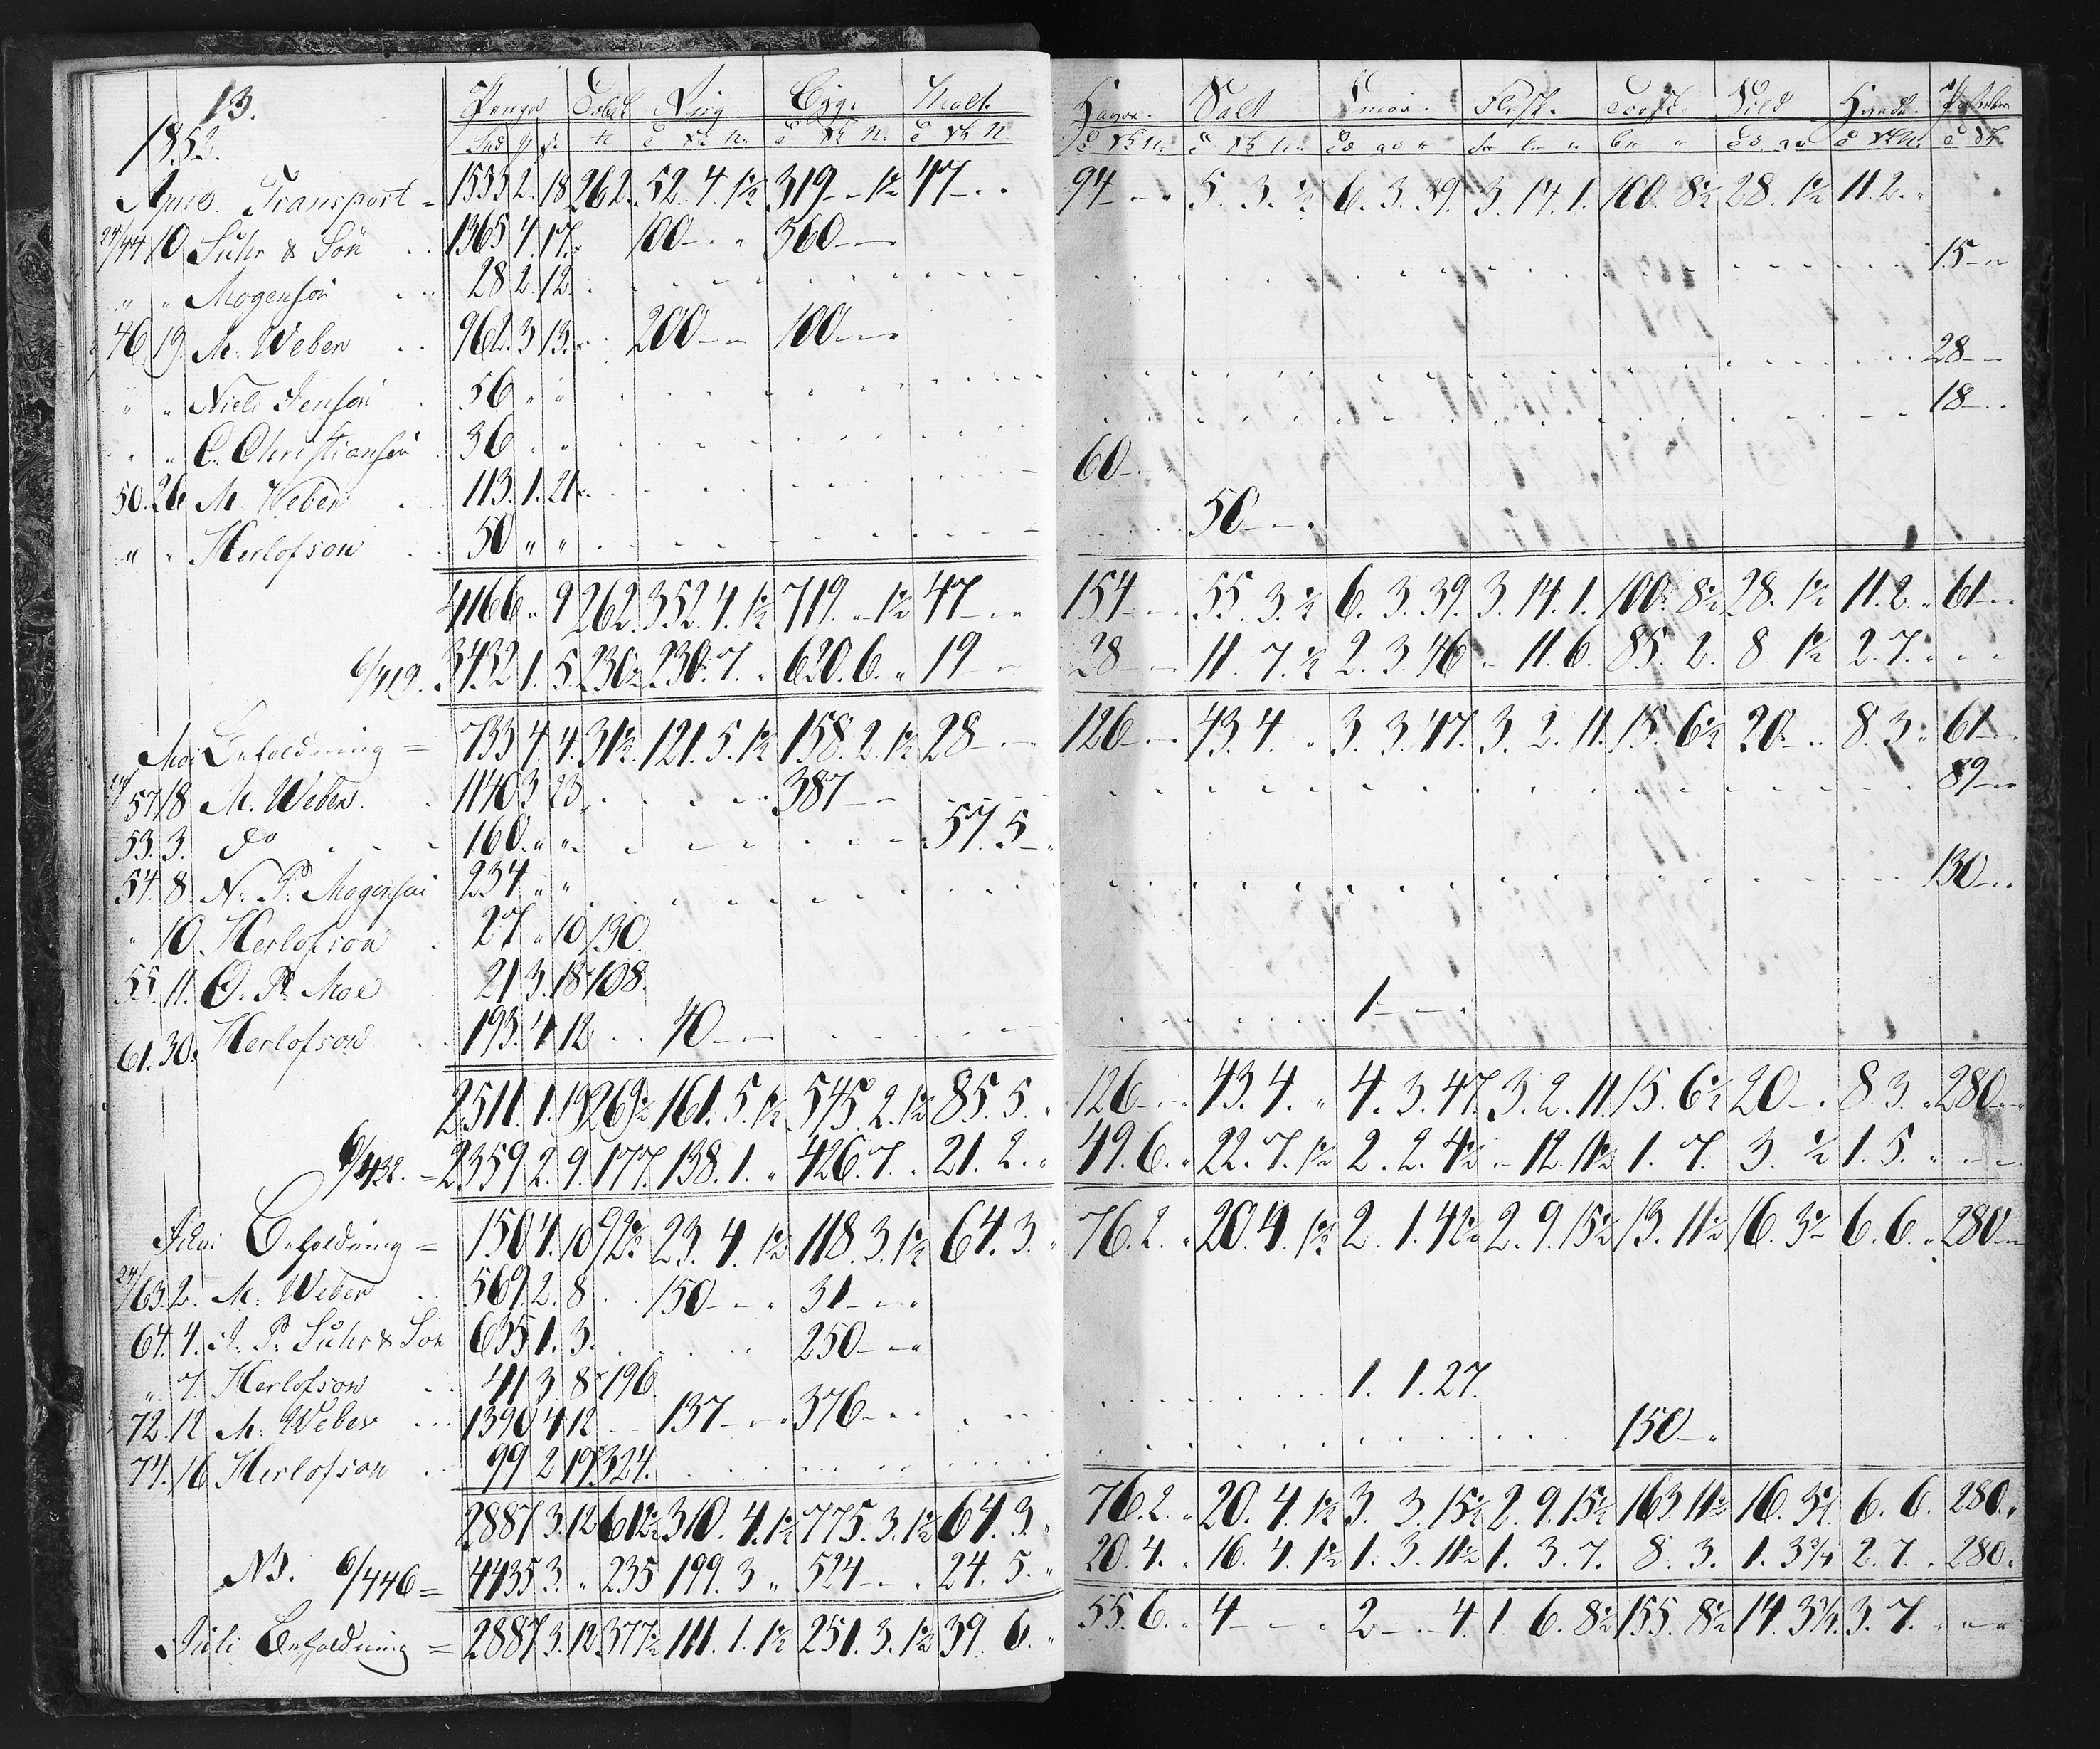 13.
1852.
Penge Tobak Rug Byg. Malt. Havre. Salt Smør. Flesk. Tørfisk Sild Humle.
April Transport = 1533 2. 18 262. 52. 4. 1½ 319 - 1½ 47 - . . 94 - . . 5. 3. ½ 6. 3. 39. 3. 14. 1. 100. 8½ 28. 1½ 11. 2. "
24/44 10 Suhr & Søn 1365 4. 17. 100 - . " 360 - -
" " Mogensøn 28 2. 12. 15 - "
46 19. M. Weber 962. 3 13. 200 - - 100 - -
" " Niels Jensøn 56 " " 28 - -
" " C. Christiansøn 36 " " 18 - . .
50. 26 M. Weber 113. 1. 21 60 - . "
" " Herlofson 50 " " 50 - - "
4166 " 9 262. 352. 4. 1½ 719. - 1½ 47 - . " 154 - - 55. 3. ½ 6. 3. 39. 3. 14. 1. 100. 8½ 28. 1½ 11. 2. " 61 - "
6/419. 3432 1. 5. 230½ 230. 7. " 620. 6. " 19 - 28 - - 11. 7. ½ 2. 3. 46 - 11. 6. 85. 2. 8. 1½ 2. 7. "
Mai Beholdning = 733 4. 4. 31½ 121. 5. 1½ 158. 2. 1½ 28 - - 126 - - 43. 4. " 3. 3. 47. 3. 2. 11. 15. 6½ 20 - . . 8. 3. " 61 - -
24/57 18 M. Weber. 1140 3 23 387 - - 89 - -
53. 3. do 160. " " 57. 5 - "
54. 8. N. P. Mogensøn 234 " " 130 - . .
" 10. Herlofson 27 " 10 130.
55. 11. O. P. Moe 21 3. 18 108.
61. 30. Herlofson 193. 4 12 40 - - 1 - - .
2511. 1. 19 269½ 161. 5. 1½ 545. 2. 1½ 85. 5. " 126 - . . 43. 4. " 4. 3. 47. 3. 2. 11. 15. 6½ 20 - . 8. 3. " 280 - "
6/432. = 2359 2. 9. 177. 138. 1. " 426. 7. " 21. 2. " 49. 6. " 22. 7. 1½ 2. 2. 4½ - 12. 11½ 1. 7. 3. ½ 1. 5. " - -
Juni Beholdning = 150 4. 10 92½ 23. 4. 1½ 118. 3. 1½ 64. 3. " 76. 2. " 20. 4. 1½ 2. 1. 42½ 2. 9. 15½ 13. 11½ 16. 3½ 6. 6. " 280 -
24/63. 2. M. Weber 569. 2. 8. 150 - - " 31 - - "
64. 4. J. P. Suhr & Søn 635 1. 3. 250 - - "
" 7. Herlofson 41 3. 8 196 1. 1. 27.
72. 12 M. Weber 1390 4 12 137 - - 376 - . . 150 - "
74. 16 Herlofson 99 2 19 324.
2887 3. 12 612½ 310. 4. 1½ 775. 3. 1½ 64. 3. " 76. 2. " 20. 4. 1½ 3. 3. 15½ 2. 9. 15½ 163 11½ 16. 3½ 6. 6. 280. "
NB. 6/446 = 4435 3. " 235 199. 3 " 524 - - . 24. 5. " 20. 4. " 16. 4. 1½ 1. 3. 11½ 1. 3. 7. 8. 3. 1. 3¾ 2. 7. . 280. "
Juli Beholdning = 2887 3. 12 377½ 111. 1. 1½ 251. 3. 1½ 39. 6. " 55. 6. " 4 - - " 2 - . 4. 1. 6. 8½ 155. 8½ 14. 3¾. 3. 7. " - "